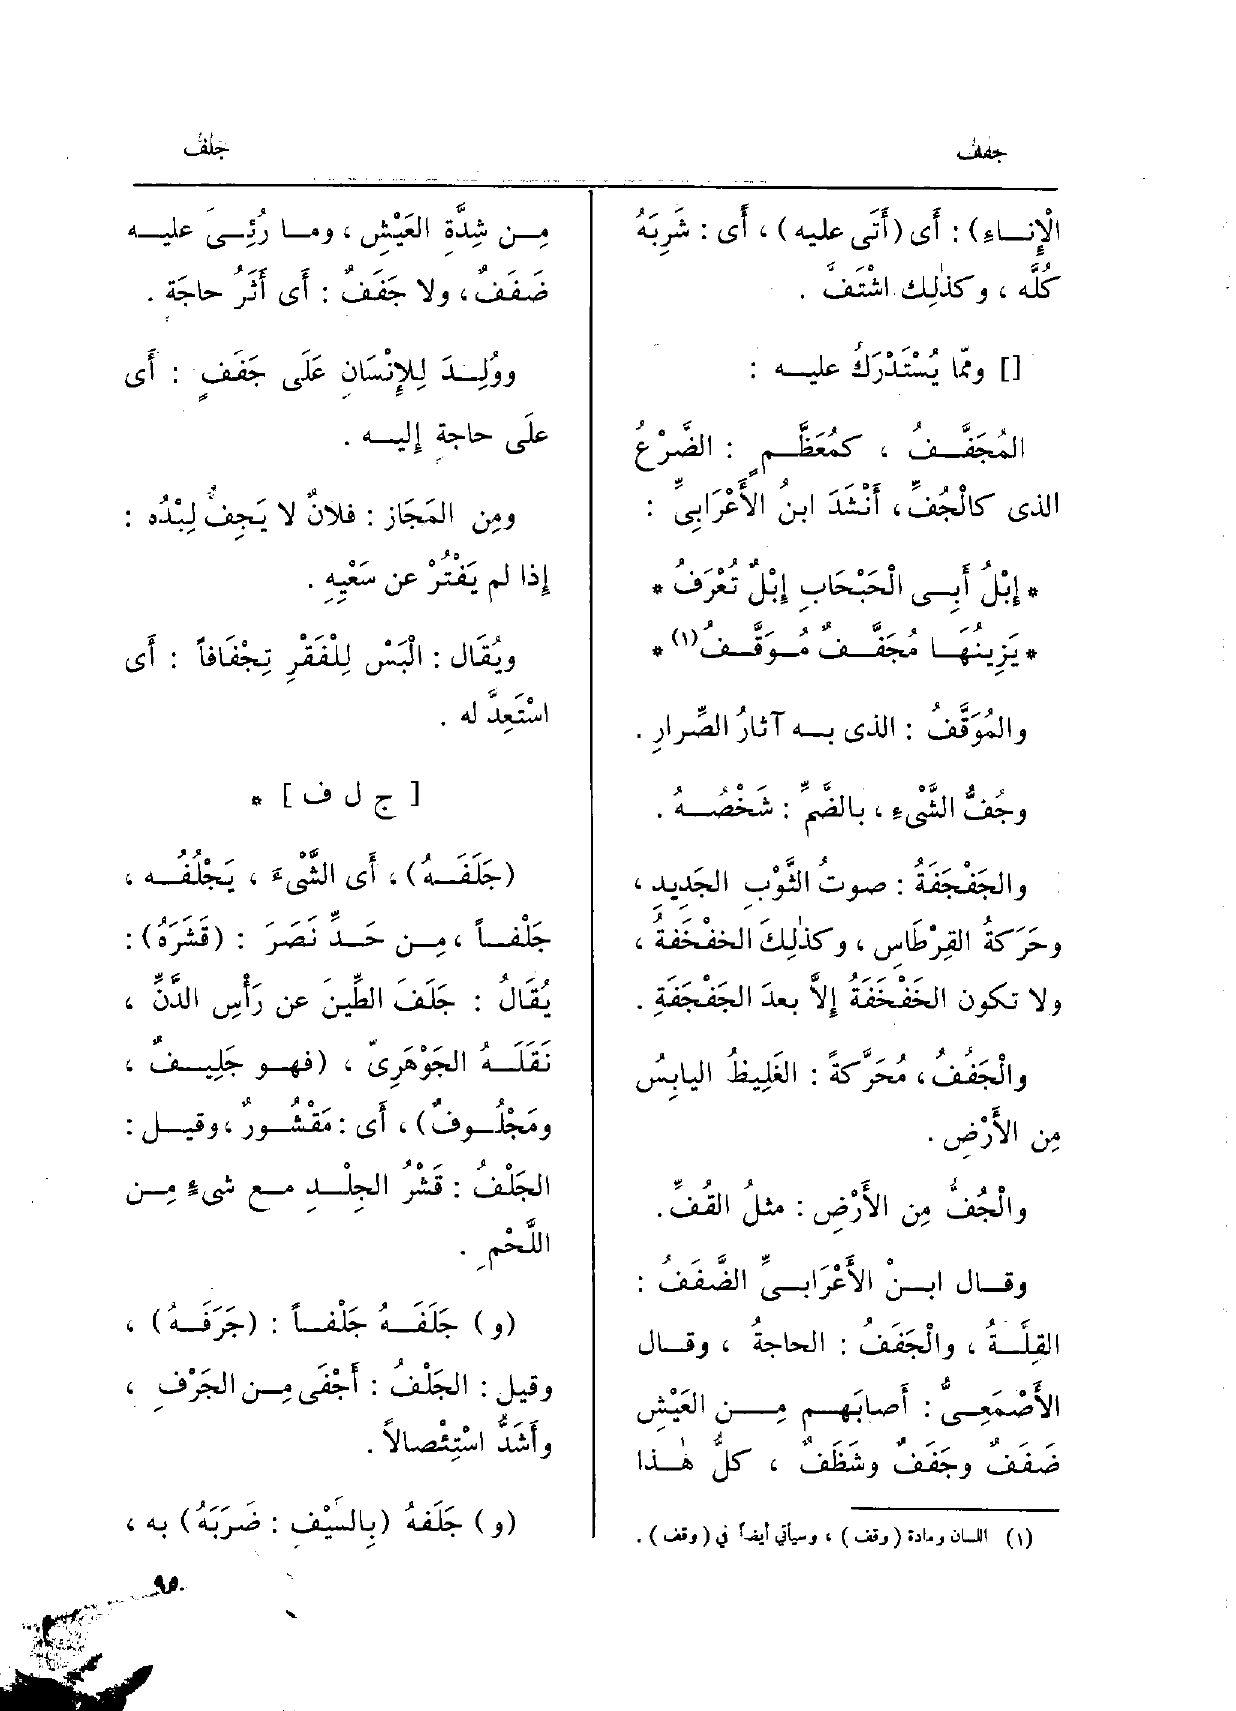 جفف
جلف
الْإِنــاءِ) : أَى (أَتَى عليه) ، أَى : شَرِبَهُ
كُلَّه ، وكذٰلِك اشْتَفَّ .
[] وممّا يُسْتَدْرَكُ عليــه :
المُجَفَّــفُ ، كمُعَظَّــمٍ : الضَّرْعُ
الذى كالْجُفِّ، أَنْشَدَ ابنُ الأَعْرَابِىِّ :
* إِبْلُ أَبِــى الْحَبْحَابِ إِبْلٌ تُعْرَفُ *
* يَزِينُهَــا مُجَفَّــفٌ مُــوَقَّــفُ (١) *
والمُوَقَّفُ : الذى بــه آثارُ الصِّرارِ .
وجُفُّ الشَّىْءِ ، بالضَّمِّ : شَخْصُــهُ .
والجَفْجَفَةُ : صوتُ الثَّوْبِ الجَدِيدِ ،
وحَرَكَةُ القِرْطَاسِ ، وكذٰلِكَ الخَفْخَفَةُ ،
ولا تكون الخَفْخَفَةُ إِلاَّ بعدَ الجَفْجَفَةِ .
والْجَفَفُ ، مُحَرَّكَةً : الغَلِيظُ اليابِسُ
مِن الأَرْضِ .
والْجُفُّ مِن الأَرْضِ : مثلُ القُفِّ .
وقــال ابــنُ الأَعْرَابِــىِّ الضَّفَفُ :
القِلَّــةُ ، والْجَفَفُ : الحاجةُ ، وقــال
الأَصْمَعِــىُّ : أَصابَهــم مِــن العَيْشِ
ضَفَفٌ وجَفَفٌ وشَظَفٌ ، كلُّ هٰــذا
(١) اللسان ومادة (وقف) ، وسيأتي أيضاً في (وقف) .
مِــن شِدَّةِ العَيْشِ ، ومــا رُئِــىَ عليــه
ضَفَفٌ، ولا جَفَفٌ : أَى أَثَرُ حاجَة .
ووُلِــدَ لِلإِنْسَانِ عَلَى جَفَفٍ : أَى
علَى حاجةٍ إِليــه .
ومِن المَجَازِ : فلانٌ لا يَجِفُّ لِبْدُه :
إِذا لم يَفْتُرْ عن سَعْيِهِ .
ويُقَال : الْبَسْ لِلْفَقْرِ تِجْفَافاً : أَى
اسْتَعِدَّ له .
[ ج ل ف ] *
(جَلَفَــهُ) ، أَى الشَّىْءَ ، يَجْلُفُــه ،
جَلْفــاً ، مِــن حَــدِّ نَصَرَ : (قَشَرَهُ) :
يُقَالُ : جَلَفَ الطِّينَ عن رَأْسِ الدَّنِّ ،
نَقَلَــهُ الجَوْهَرِىّ ، (فهــو جَلِيــفٌ ،
ومَجْلُــوفٌ) ، أَى : مَقْشُــورٌ ، وقيــل :
الجَلْفُ : قَشْرُ الجِلْــدِ مــع شىءٍ مِــن
اللَّحْمِ .
(و) جَلَفَــهُ جَلْفــاً : (جَرَفَــهُ) ،
وقيل : الجَلْفُ : أَجْفَى مِــن الجَرْفِ ،
وأَشَدُّ اسْتِئْصالاً .
(و) جَلَفَهُ (بِالسَّيْفِ : ضَرَبَهُ) به ،